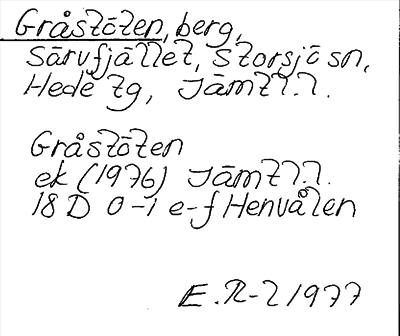 Gråstöten, berg,
Särvfjället, Storsjö sn,
Hede tg, Jämtl.l.
Gråstöten
ek (1976) Jämtl.l.
18 D 0-1 e-f Henvålen
E.R-l 1977